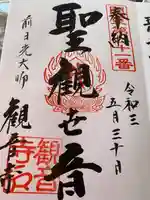 奉納
令和三
五月三十日
聖観世音
前日光大師
観音
観音
寺印